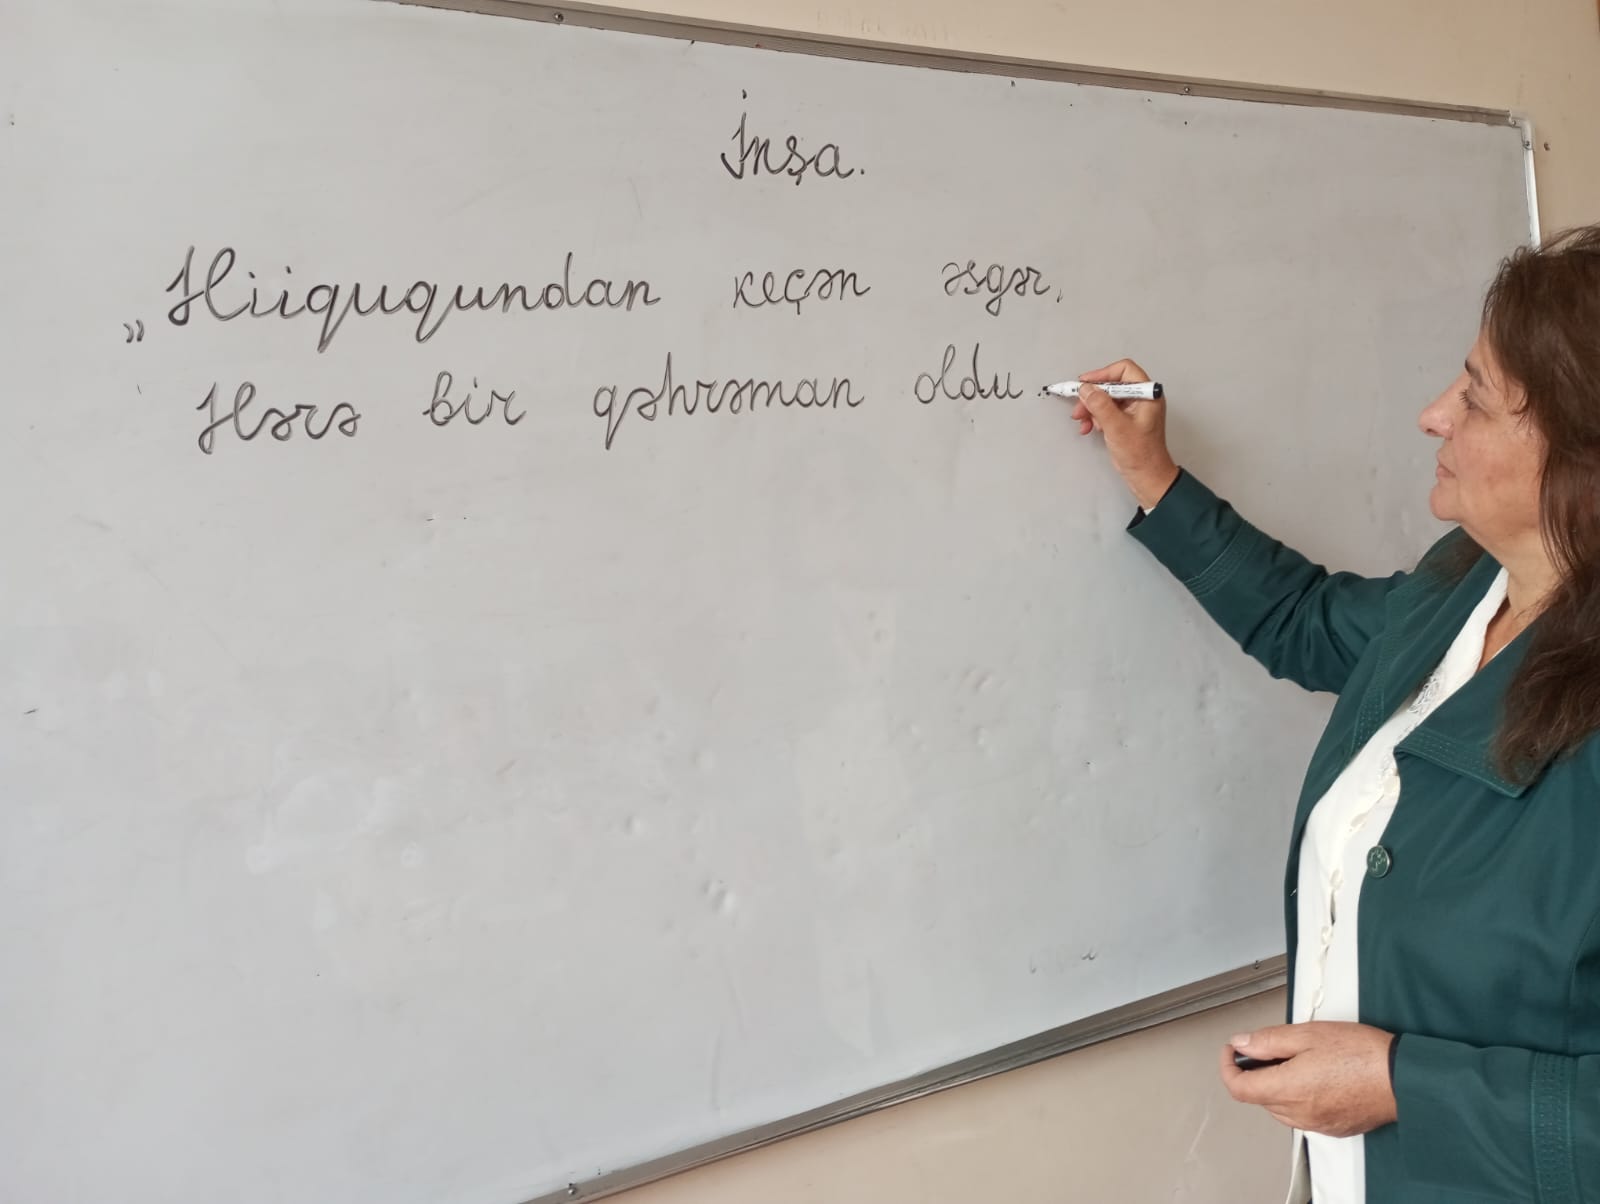 İnşa.
„Hüququndan keçən əsgər,
Hərə bir qəhrəman oldu.